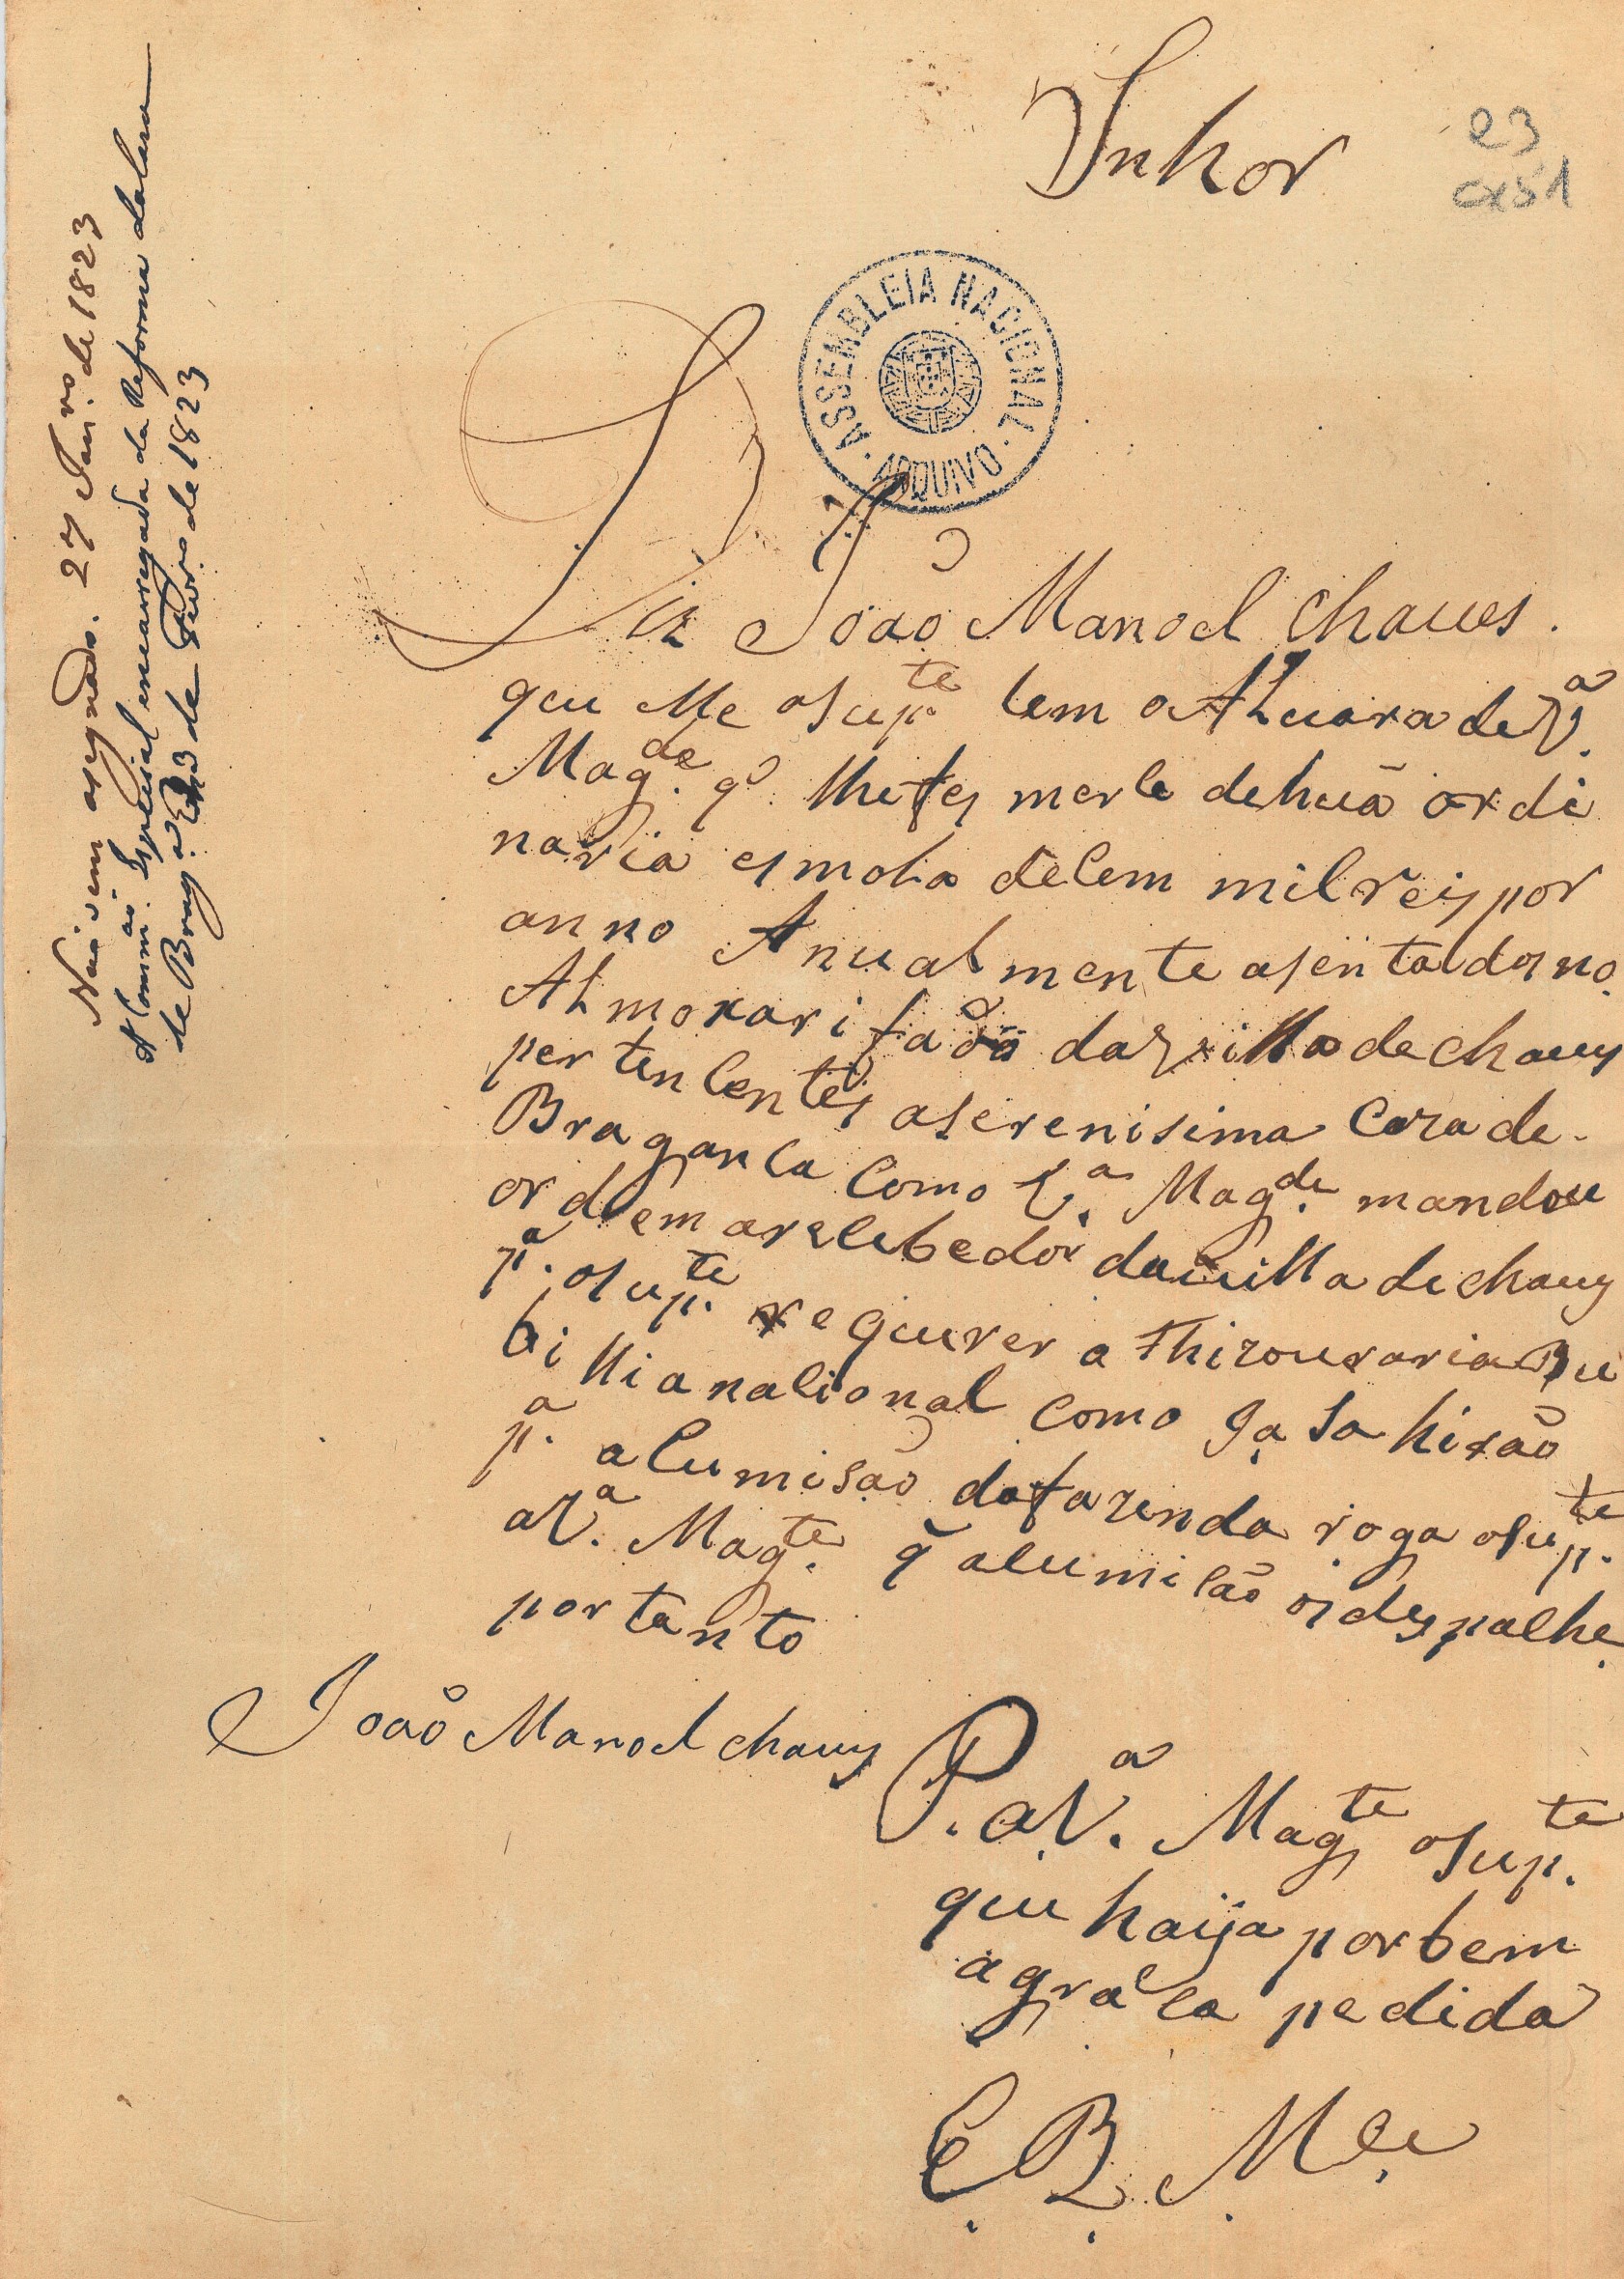 Senhor
23
cx51
ASSEMBLEIA NACIONAL
ARQUIVO
Diz João Manoel Chaves.
que elle o Sup.te tem o Alvara de V.a
Mag.de q. lhe fes merce de huã ordi
naria esmola de Cem mil reis por
anno Anual mente asentados no
Almoxarifado da villa de chaves
pertencentes a Serenisima Caza de
Braganca como V.a Mag.de mandou
ordem a recebedor da villa de chaves
p.a o Sup.te requerer a Thizouraria Pu
billia nacional como Ja Sa hirão
p.a a Cumisão da fazenda roga o Sup.te
a V.a Mag.te q̃ a Cumisão o despache
portanto
João Manoel chaves
P. a V.a Mag.te o Sup.te
que haija por bem
a graca pedida
E R M.ce
Não vem asignado. 27 Janr.o de 1823
Á Comm.ão Especial encarregada da Reforma da Casa
de Brag.a Em 3 de Fevr.o de 1823